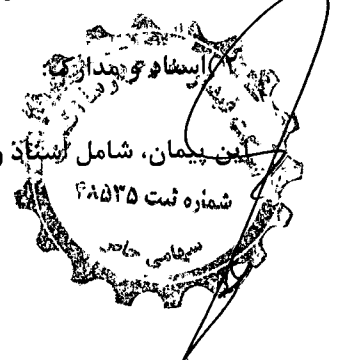 ۲) اسناد و مدارک:
این پیمان، شامل اسناد و
شماره ثبت ۴۸۵۳۵
سهامی خاص